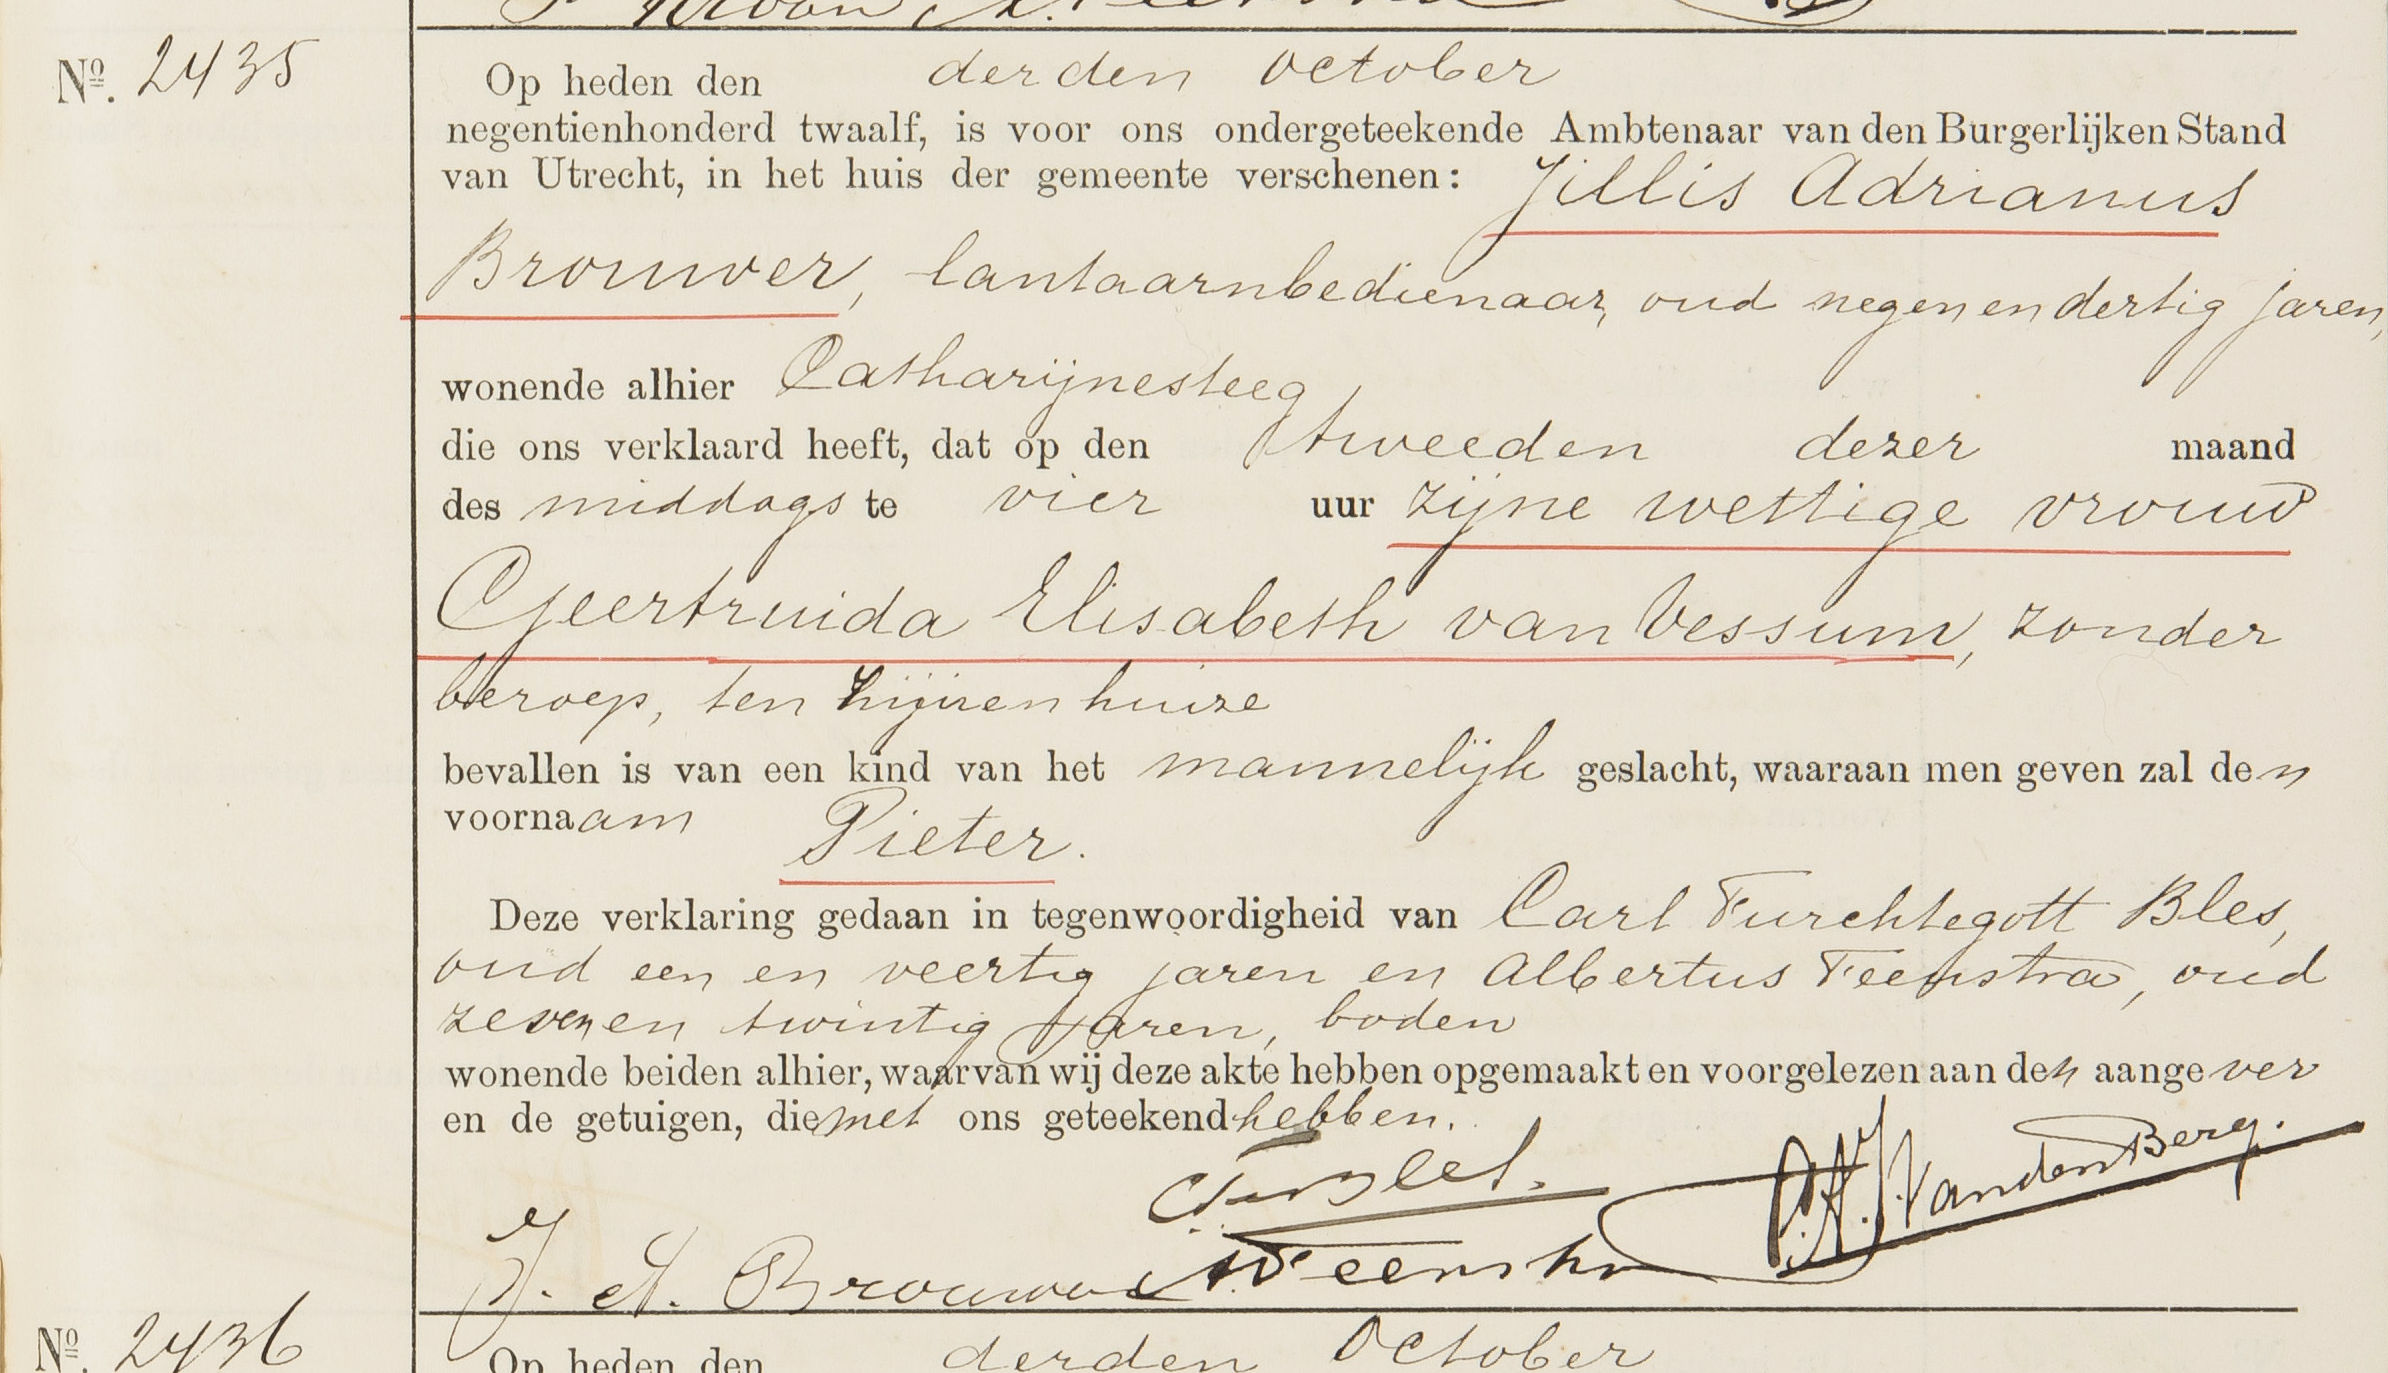 Nº. 2435
Op heden den derden October
negentienhonderd twaalf, is voor ons ondergeteekende Ambtenaar van den Burgerlijken Stand
van Utrecht, in het huis der gemeente verschenen: Jillis Adrianus
Brouwer, lantaarnbedienaar, oud negen en dertig jaren,
wonende alhier Catharijnesteeg
die ons verklaard heeft, dat op den tweeden dezer maand
des middags te vier uur zijne wettige vrouw
Geertruida Elisabeth van Vessum, zonder
beroep, ten zijnen huize
bevallen is van een kind van het mannelijk geslacht, waaraan men geven zal den
voornaam Pieter.
Deze verklaring gedaan in tegenwoordigheid van Carl Furchtegott Bles,
oud een en veertig jaren en Albertus Feenstra, oud
zeven en twintig jaren, boden
wonende beiden alhier, waarvan wij deze akte hebben opgemaakt en voorgelezen aan den aangever
en de getuigen, die met ons geteekend hebben.
Bles.
VandenBerg.
J. A. Brouwer
A. Feenstra
Nº. 2436
Op heden den derden October